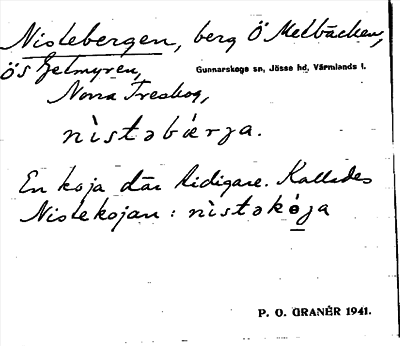 Nistebergen, berg Ö Mellbäcken,
ÖS Getmyren,
Gunnarskogs sn, Jösse hd, Värmlands l.
Norra Treskog,
nìstəbǽrja.
En koja där tidigare. Kallades
Nistekojan : nìstəkója
P. O. GRANÉR 1941.